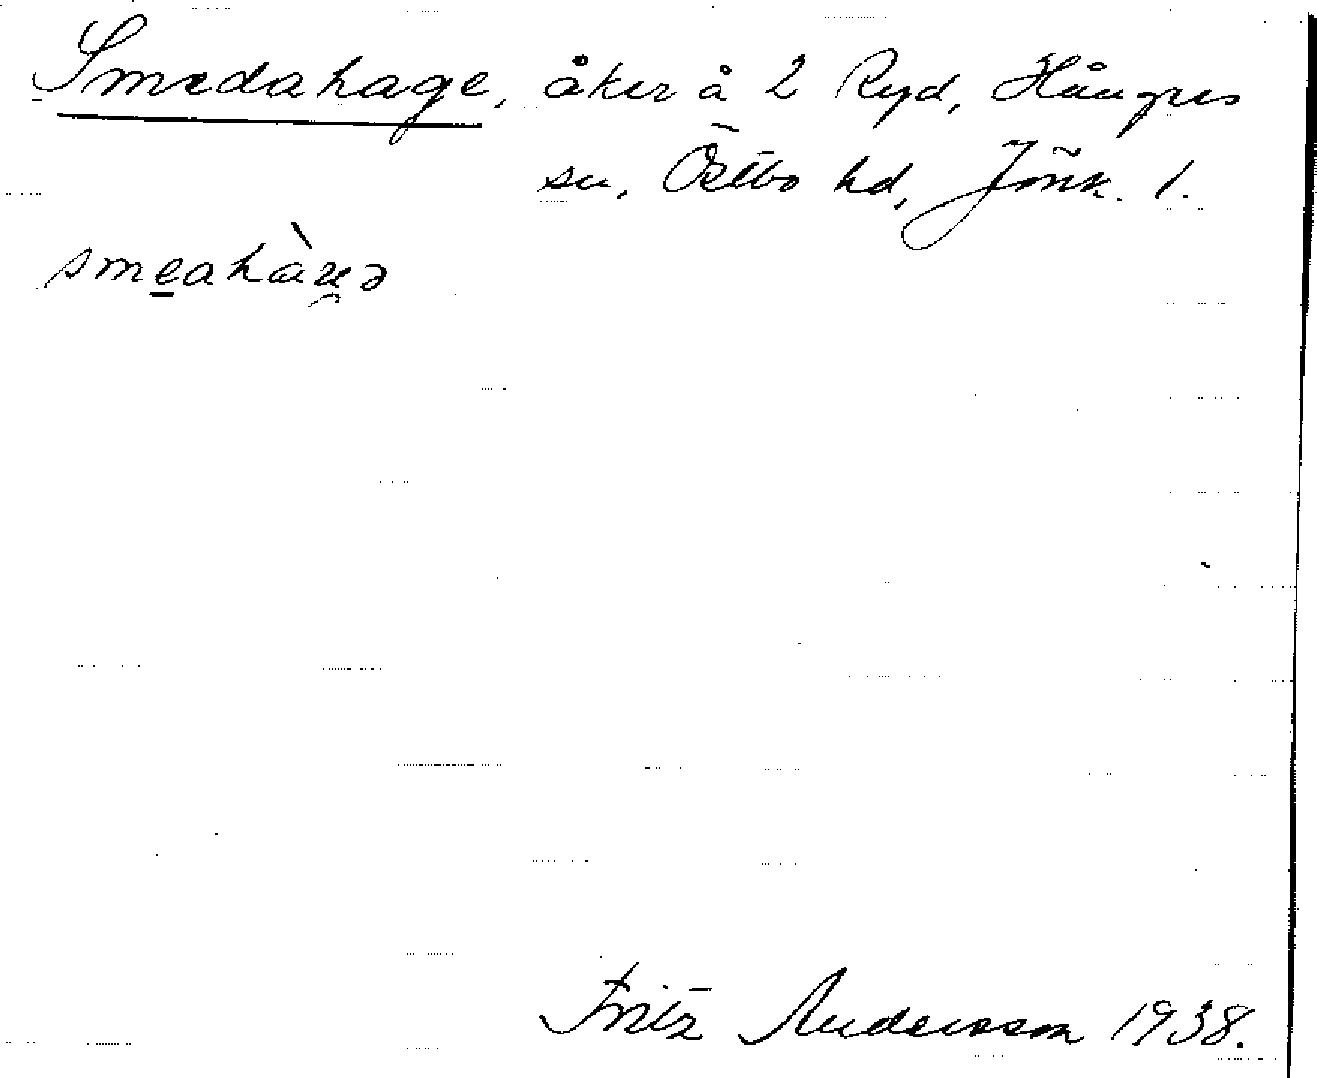 Smedahage, åker å 2 Ryd, Hånger
sn, Östbo hd, Jönk. l.
Fritz Andersson 1938.